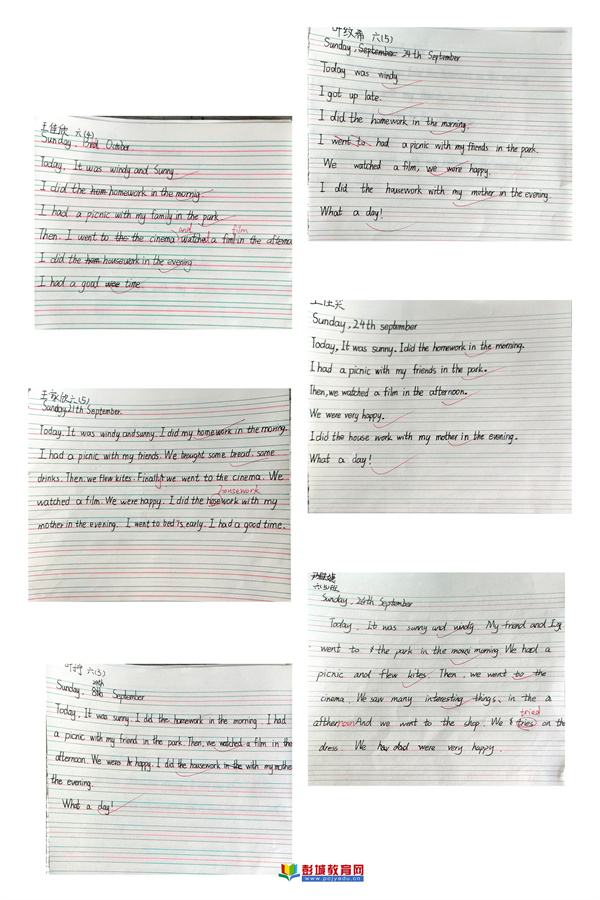 王佳欣 六(4)
Sunday, 3rd October
Today. It was windy and Sunny
I did the hom homework in the mornig
I had a picnic with my family in the park
and film
Then. I went to the the cinema watched a fiml in the afterno
I did the hom housework in the evening
I had a good was time.
王家欣六(5)
Sunday 21th September.
Today. It was windy and sunny. I did my homework in the moring.
I had a picnic with my friends. We brought some bread. some
drinks. Then. we flew kites. Finally we went to the cinema. We
housework
watched a film. We were happy. I did the hosework with my
mother in the evening. I went to bed is early. I had a good time.
六(3)
Sunday, September
Today, It was sunny. I did the homework in the morning. I had
a picnic with my friend in the park. Then, we watched a film in the
afternoon. We were happy. I did the housework in the with my mother
the evening.
What a day!
叶纹希 六(5)
Sunday, September 24th September
Today was windy
I got up late.
I did the homework in the morning.
I went to had a picnic with my friends in the park.
We watched a film, we were happy.
I did the housework with my mother in the evening
What a day!
Sunday, 24th september
Today, It was sunny. I did the homework in the morning.
I had a picnic with my friends in the park.
Then, we watched a film in the afternoon.
We were very happy.
I did the house work with my mother in the evening.
What a day!
六(5)班
Sunday, 24th September
Today. It was sunny and windy. My friend and I
went to the park in the morning. We had a
picnic and flew kites. Then, we went to the
cinema. We saw many interesting things, in the a
tried
afthernoon And we went to the shop. We tries on the
dress. We were very happy.
彭城教育网
www.pcjyedu.cn